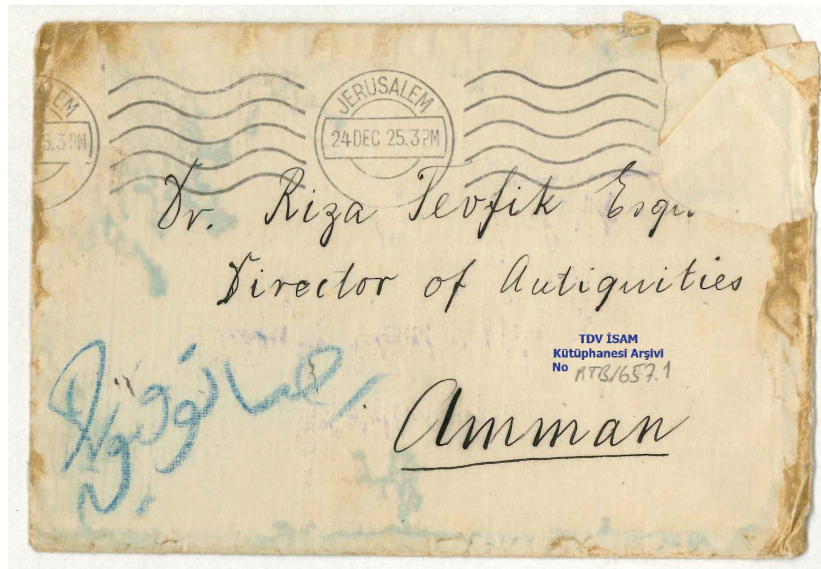 JERUSALEM
24 DEC 25. 3 PM
EM
5. 3 PM
Dr. Riza Tevfik Esqu.
Director of Antiquities
TDV İSAM
Kütüphanesi Arşivi
No RTB/657.1
Amman